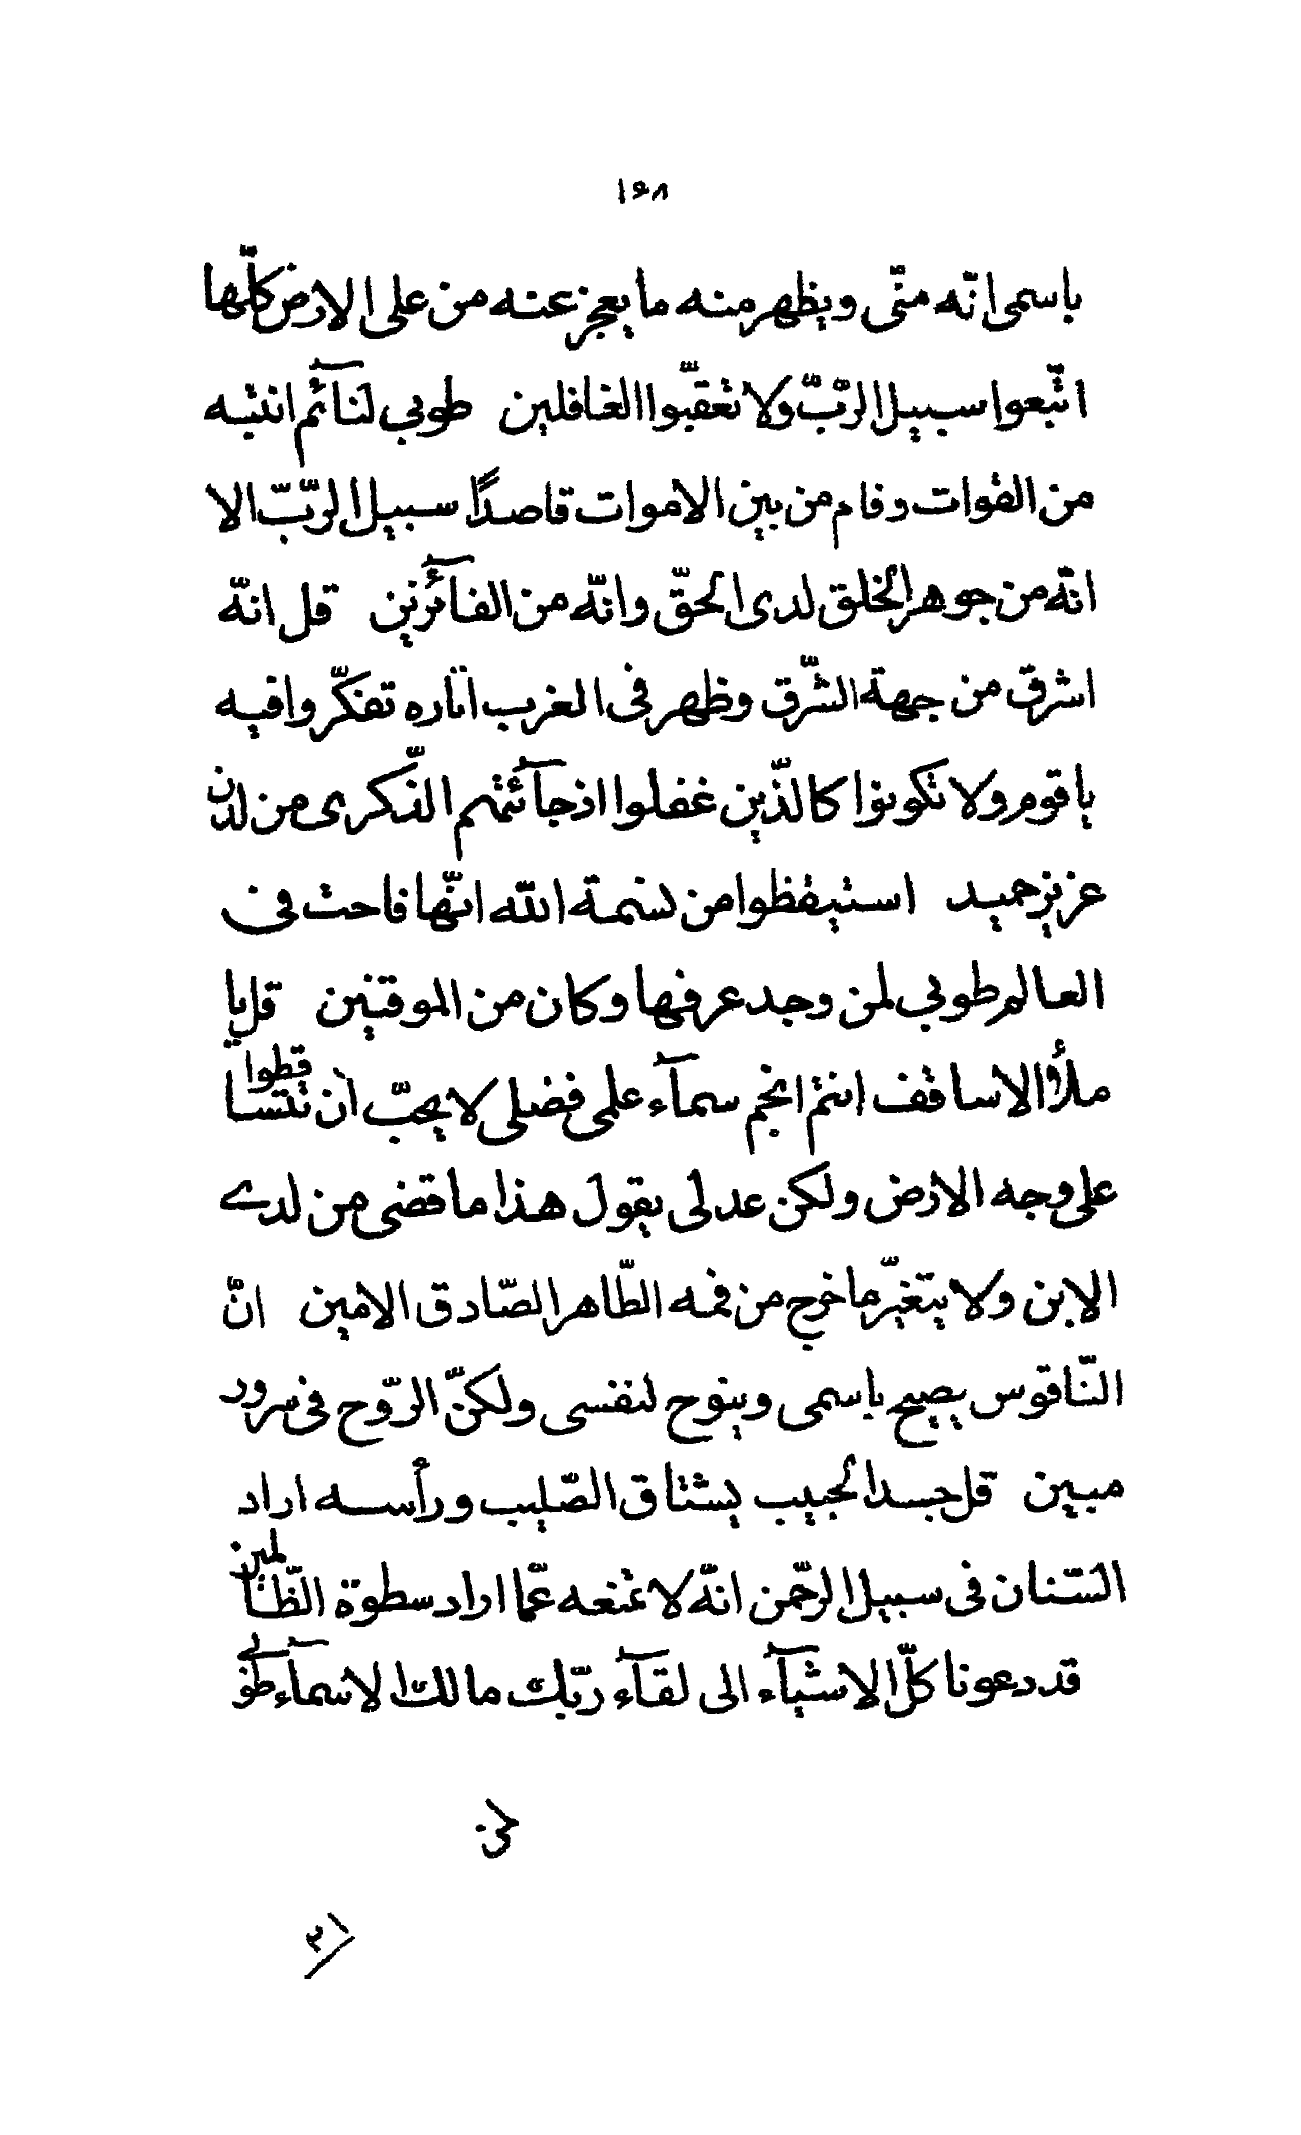 ۱۶۸
باسمی انّه منّی ویظهر منه ما یعجز عنه من علی الارض کلّها
اتّبعوا سبیل الرّبّ ولا تعقّبوا الغافلین طوبی لنآئم انتبه
من الفوات وقام من بین الاموات قاصداً سبیل الرّبّ الا
انّه من جوهر الخلق لدی الحقّ وانّه من الفآئزین قل انّه
اشرق من جهة الشّرق وظهر فی الغرب اثاره تفکّروا فیه
یا قوم ولا تکونوا کالّذین غفلوا اذ جآئتهم الذّکری من لدن
عزیز حمید استیقظوا من نسمة الله انّها فاحت فی
العالم طوبی لمن وجد عرفها وکان من الموقنین قل یا
ملأ الاساقف انتم انجم سمآء علمی فضلی لا یحبّ ان تتساقطوا
علی وجه الارض ولکن عدلی یقول هذا ما قضی من لدی
الابن ولا یتغیّر ما خرج من فمه الطّاهر الصّادق الامین انّ
النّاقوس یصیح باسمی وینوح لنفسی ولکنّ الرّوح فی سرور
مبین قل جسد الحبیب یشتاق الصّلیب ورأسه اراد
السّنان فی سبیل الرّحمن انّه لا تمنعه عمّا اراد سطوة الظّالمین
قد دعونا کلّ الاشیآء الی لقآء ربّك مالك الاسمآء طوبی